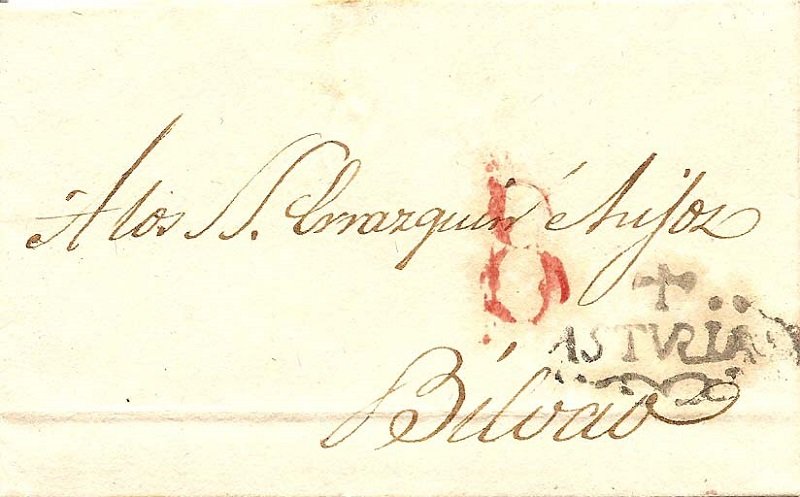 A los S.S. Errazquin é hijos
8
ASTURIAS
Bilvao